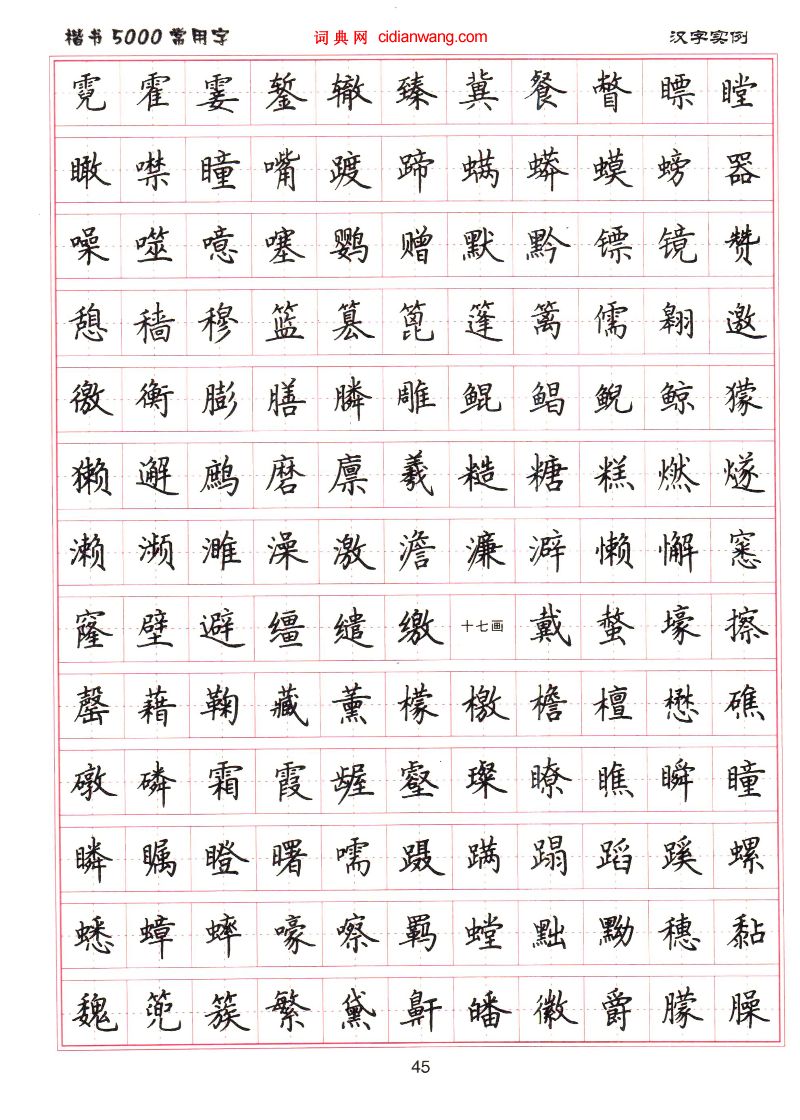 楷书5000常用字 词典网 cidianwang.com 汉字实例
霓霍霎錾辙臻冀餐瞥瞟瞠
瞰噤瞳嘴踱蹄蹒蟒蟆螃器
噪噬噫噻鹦赠默黔镖镜赞
憩穑穆篮篡篦篷篱儒翱邀
徼衡膨膳膦雕鲲鲳鲵鲸獴
獭邂鹧磨廪羲糙糖糕燃燧
濑濒濉澡激澹濂澼懒懈窸
窿壁避缰缱缴十七画戴螯壕擦
罄藉鞠藏薰檬檄檐檀懋礁
礅磷霜霞龌壑璨瞭瞧瞬瞳
瞵瞩瞪曙嚅蹑蹒蹋蹈蹊螺
蟋蟑蟀嚎察羁螳黜黝穗黏
魏篼簇繁黛鼾皤徽爵朦臊
45